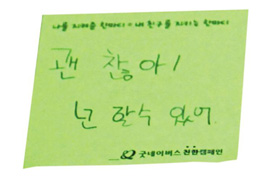 나를 지켜준 한마디 = 내 친구를 지키는 한마디
괜찮아!
넌 할수 있어.
굿네이버스 전환캠페인